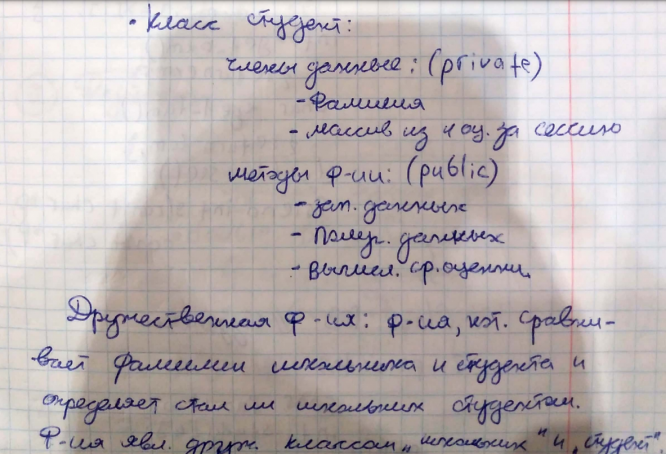 • Класс студент:
члены данные: (private)
- Фамилия
- массив из 4 оц. за сессию
методы ф-ии: (public)
- зап. данных
- получ. данных
- вычисл. ср. оценки.
Дружественная ф-ия: ф-ия, кот. сравни-
вает фамилии школьника и студента и
определяет стал ли школьник студентом.
Ф-ия явл. друж. классам „школьник" и „студент".